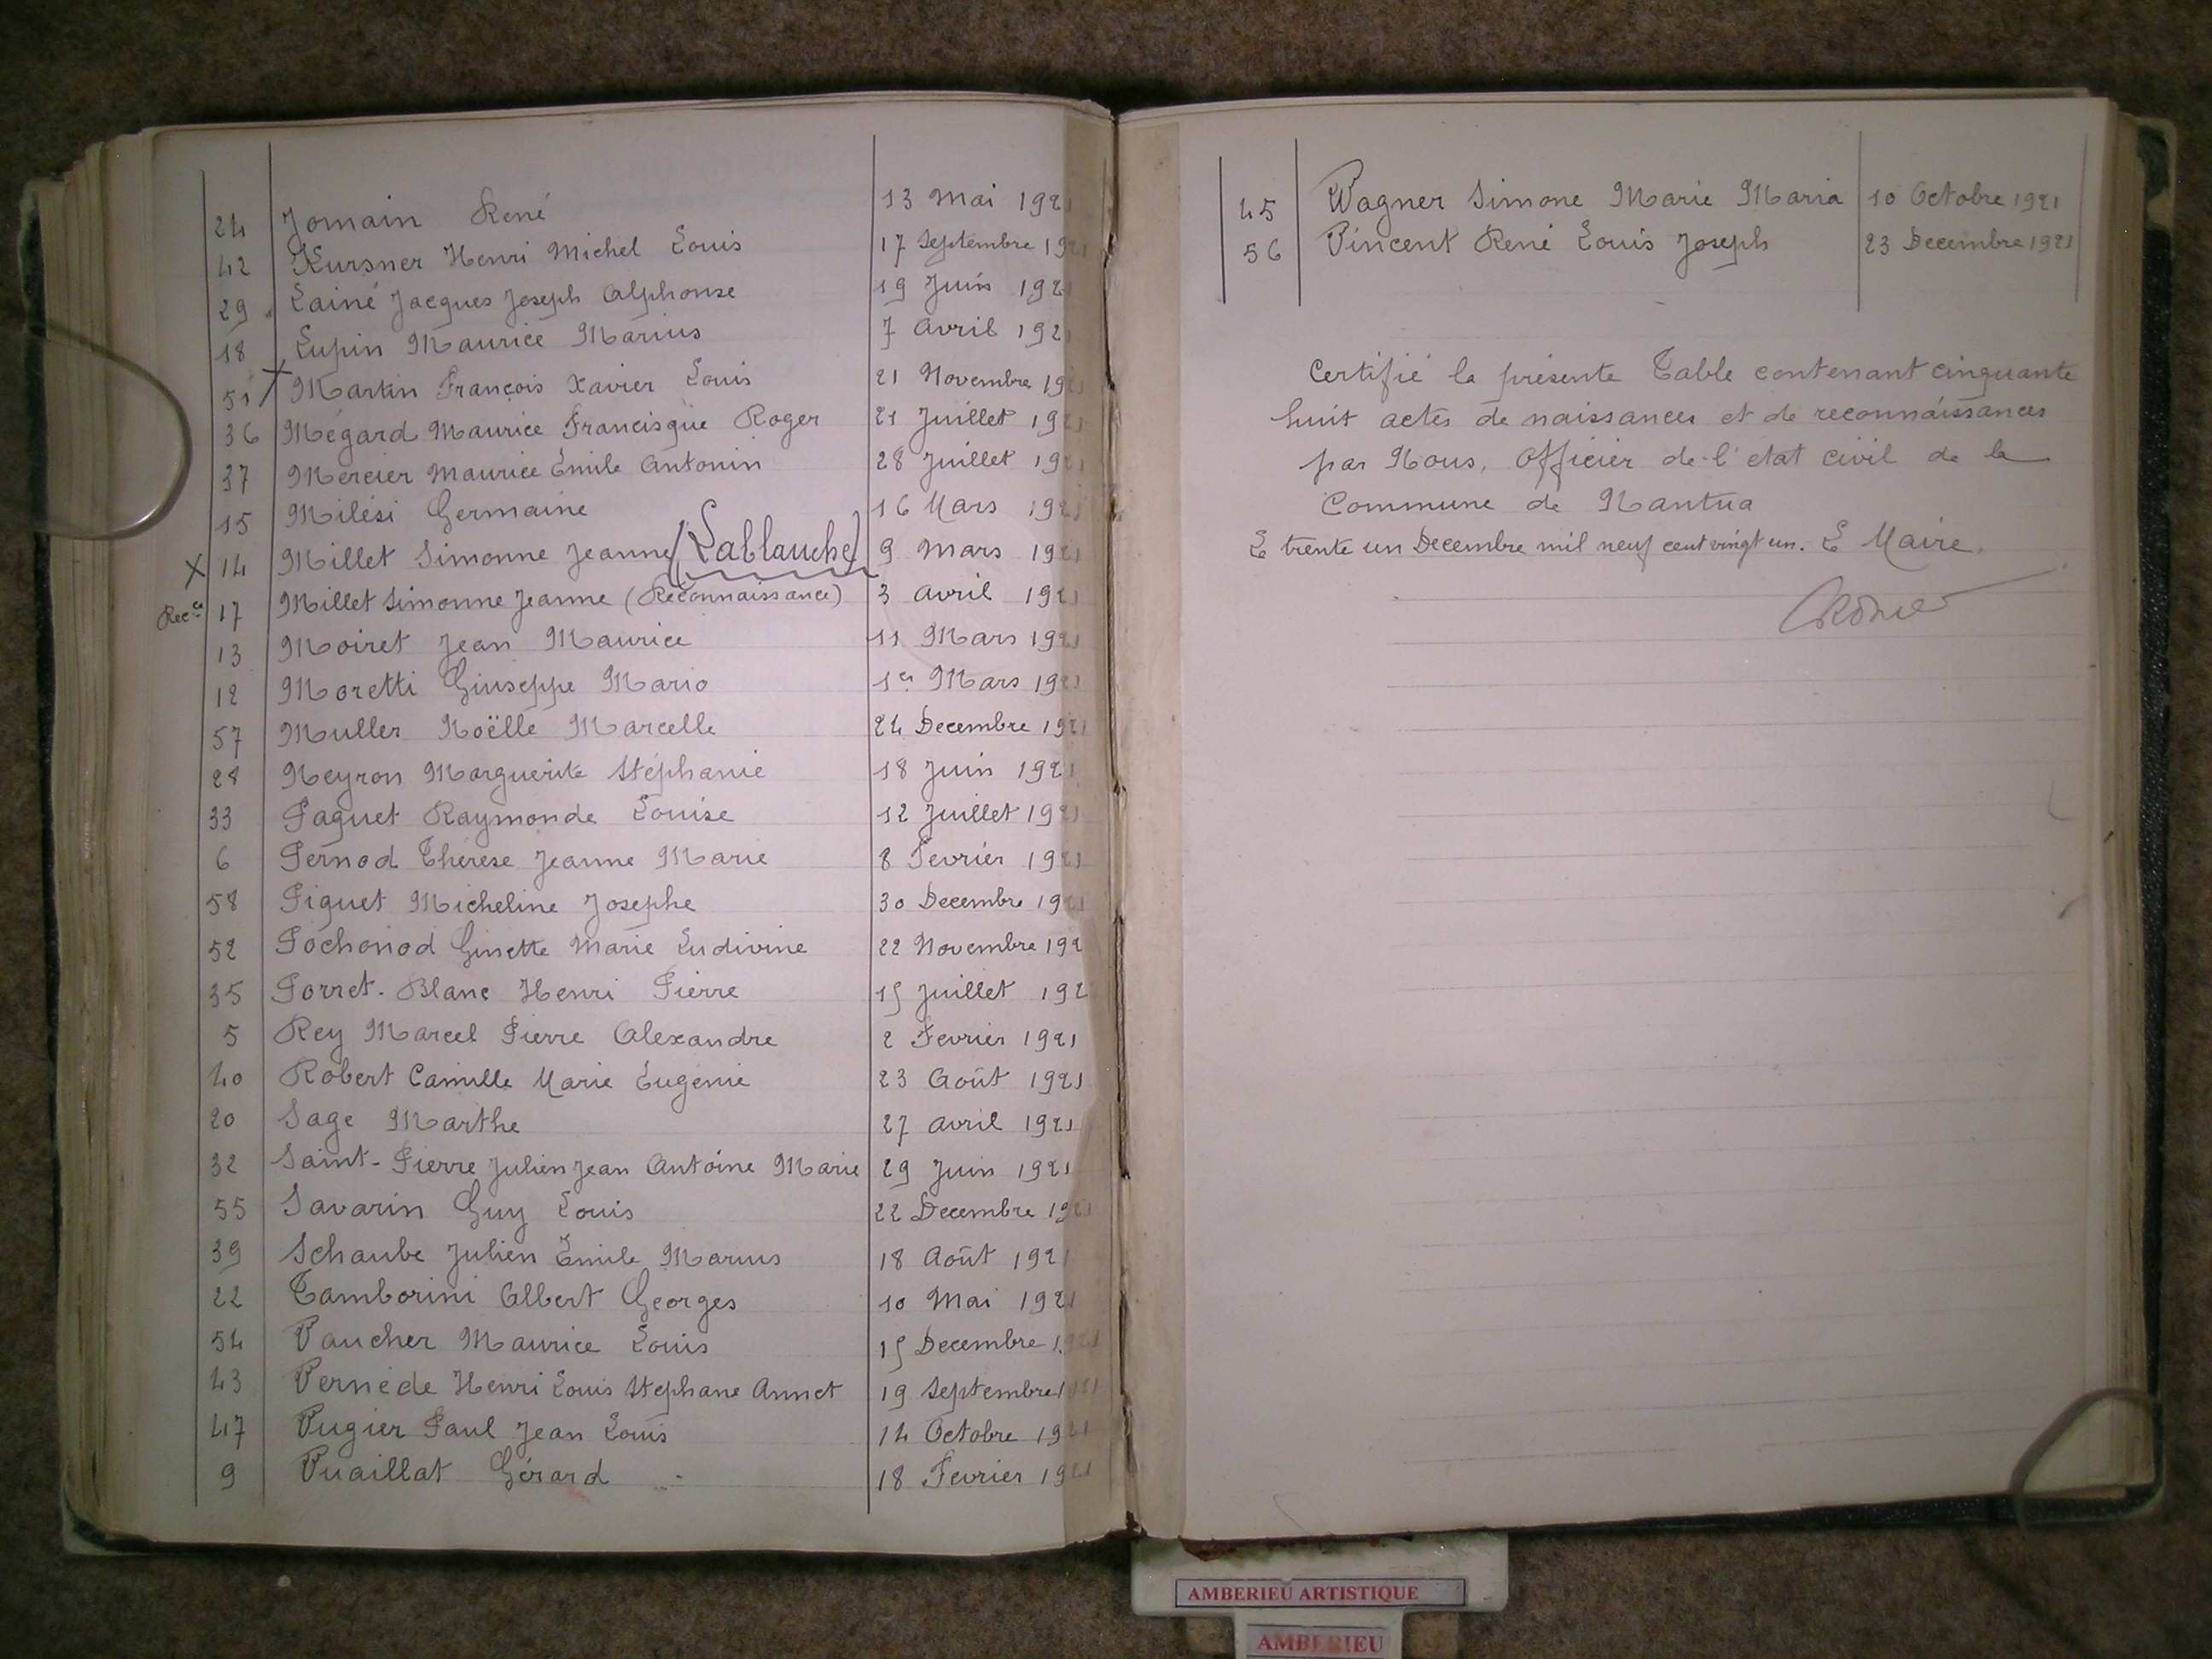 24 Jomain René 13 Mai 1921
42 Kursner Henri Michel Louis 17 Septembre 1921
29 Lainé Jacques Joseph Alphonse 19 Juin 1921
18 Lupin Maurice Marius 7 Avril 1921
51 Martin François Xavier Louis 21 Novembre 1921
36 Mégard Maurice Francisque Roger 21 Juillet 1921
37 Mercier Maurice Émile Antonin 28 Juillet 1921
15 Milési Germaine 16 Mars 1921
X 14 Millet Simonne Jeanne (Lablauche) 9 Mars 1921
Recce 17 Millet Simonne Jeanne (Reconnaissance) 3 Avril 1921
13 Moiret Jean Maurice 11 Mars 1921
12 Moretti Giuseppe Mario 1er Mars 1921
57 Muller Noëlle Marcelle 24 Decembre 1921
28 Neyron Marguerite Stéphanie 18 Juin 1921
33 Paquet Raymonde Louise 12 Juillet 1921
6 Pernod Thérèse Jeanne Marie 8 Fevrier 1921
58 Piquet Micheline Josephe 30 Decembre 1921
52 Pochonod Ginette Marie Ludivine 22 Novembre 192
35 Porret-Blanc Henri Pierre 15 Juillet 192
5 Rey Marcel Pierre Alexandre 2 Fevrier 1921
40 Robert Camille Marie Eugénie 23 Août 1921
20 Sage Marthe 27 Avril 1921
32 Saint-Pierre Julien Jean Antoine Marie 29 Juin 1921
55 Savarin Guy Louis 22 Decembre 1921
39 Schaube Julien Émile Marius 18 Août 1921
22 Tamborini Albert Georges 10 Mai 1921
54 Vaucher Maurice Louis 15 Decembre 1921
43 Vernède Henri Louis Stephane Annet 19 Septembre 1921
47 Vugier Paul Jean Louis 14 Octobre 1921
9 Vuaillat Gérard 18 Fevrier 1921
45 Wagner Simone Marie Maria 10 Octobre 1921
56 Vincent René Louis Joseph 23 Decembre 1921
Certifié la présente Table contenant cinquante
huit actes de naissances et de reconnaissances
par Nous, Officier de l'état civil de la
Commune de Nantua
Le trente un Decembre mil neuf cent vingt un. Le Maire.
AMBERIEU ARTISTIQUE
AMBERIEU